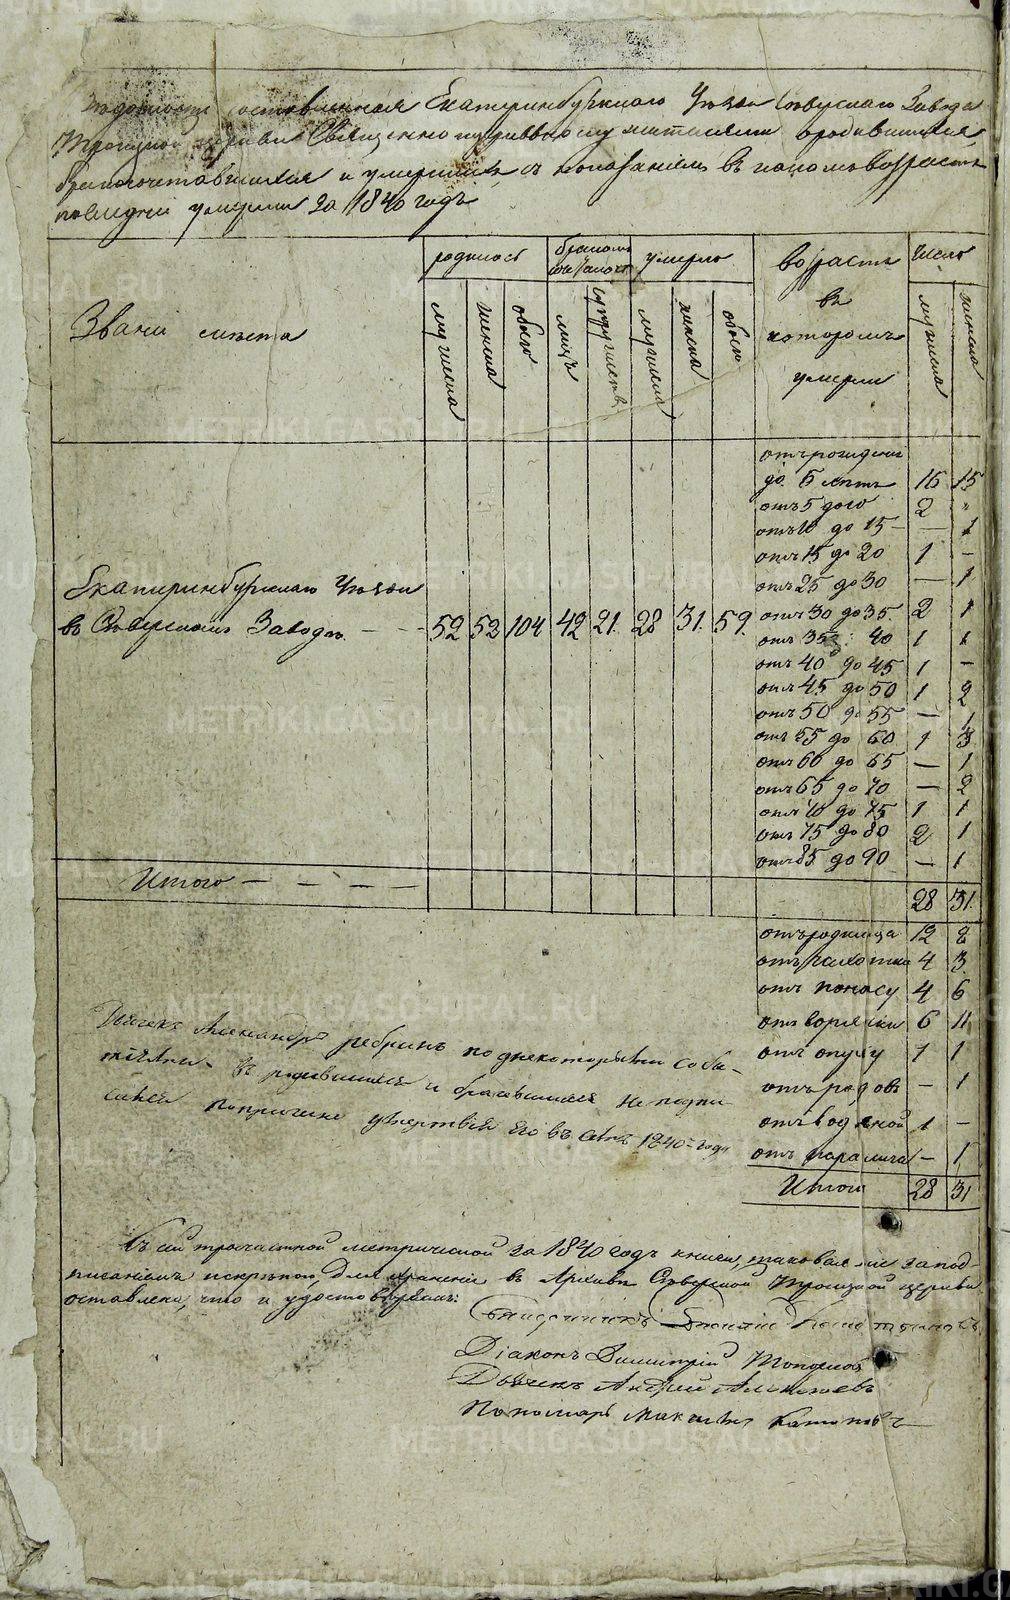 составленная Екатеринбургскаго Уезда Северскаго Завода
Троицкой церкви Священно о родившихся,
бракосочетавшихся и умершихъ, съ показаніемъ въ какомъ возрасте
последніе умерли за 1840 годъ
родилось
бракомъ
умерло
возрастъ
число
Звание места
мужеска
женска
обоего
лицъ
супружествъ
мужеска
женска
обоего
въ
которомъ
умерли
мужеска
женска
отъ рождения
до 5 летъ 16 15
отъ 5 до 10 2 "
отъ 10 до 15 — — 1
отъ 15 до 20 1 —
отъ 25 до 30 — 1
Екатеринбургскаго Уезда
въ Северскомъ Заводе — — 52 52 104 42 21 28 31 59
отъ 30 до 35 2 1
отъ 35 : 40 1 1
отъ 40 до 45 1 —
отъ 45 до 50 1 2
отъ 50 до 55 — 1
отъ 55 до 60 1 3
отъ 60 до 65 — 1
отъ 65 до 70 — 2
отъ 70 до 75 1 1
отъ 75 до 80 2 1
отъ 85 до 90 — 1
Итого — — — —
28 31
отъ родимца 12 8
отъ чахотки 4 3
отъ поносу 4 6
отъ горячки 6 11
отъ 1 1
отъ родовъ — 1
отъ водяной 1 —
отъ паралича — 1
Итого 28 31
Дьячекъ Александръ подъ некоторыми
въ родившихся и не
по причине его въ 1840 года
Къ сей троечастной метрической за 1840 годъ книги, таковая же за под-
писаніемъ для храненія въ Архиве Северской Троицкой церкви
оставлена, что и удостоверяемъ:
Священникъ
Діаконъ Димитрій Топорковъ
Дьячекъ Андрей Алексеевъ
Пономарь
METRIKI.GASO-URAL.RU